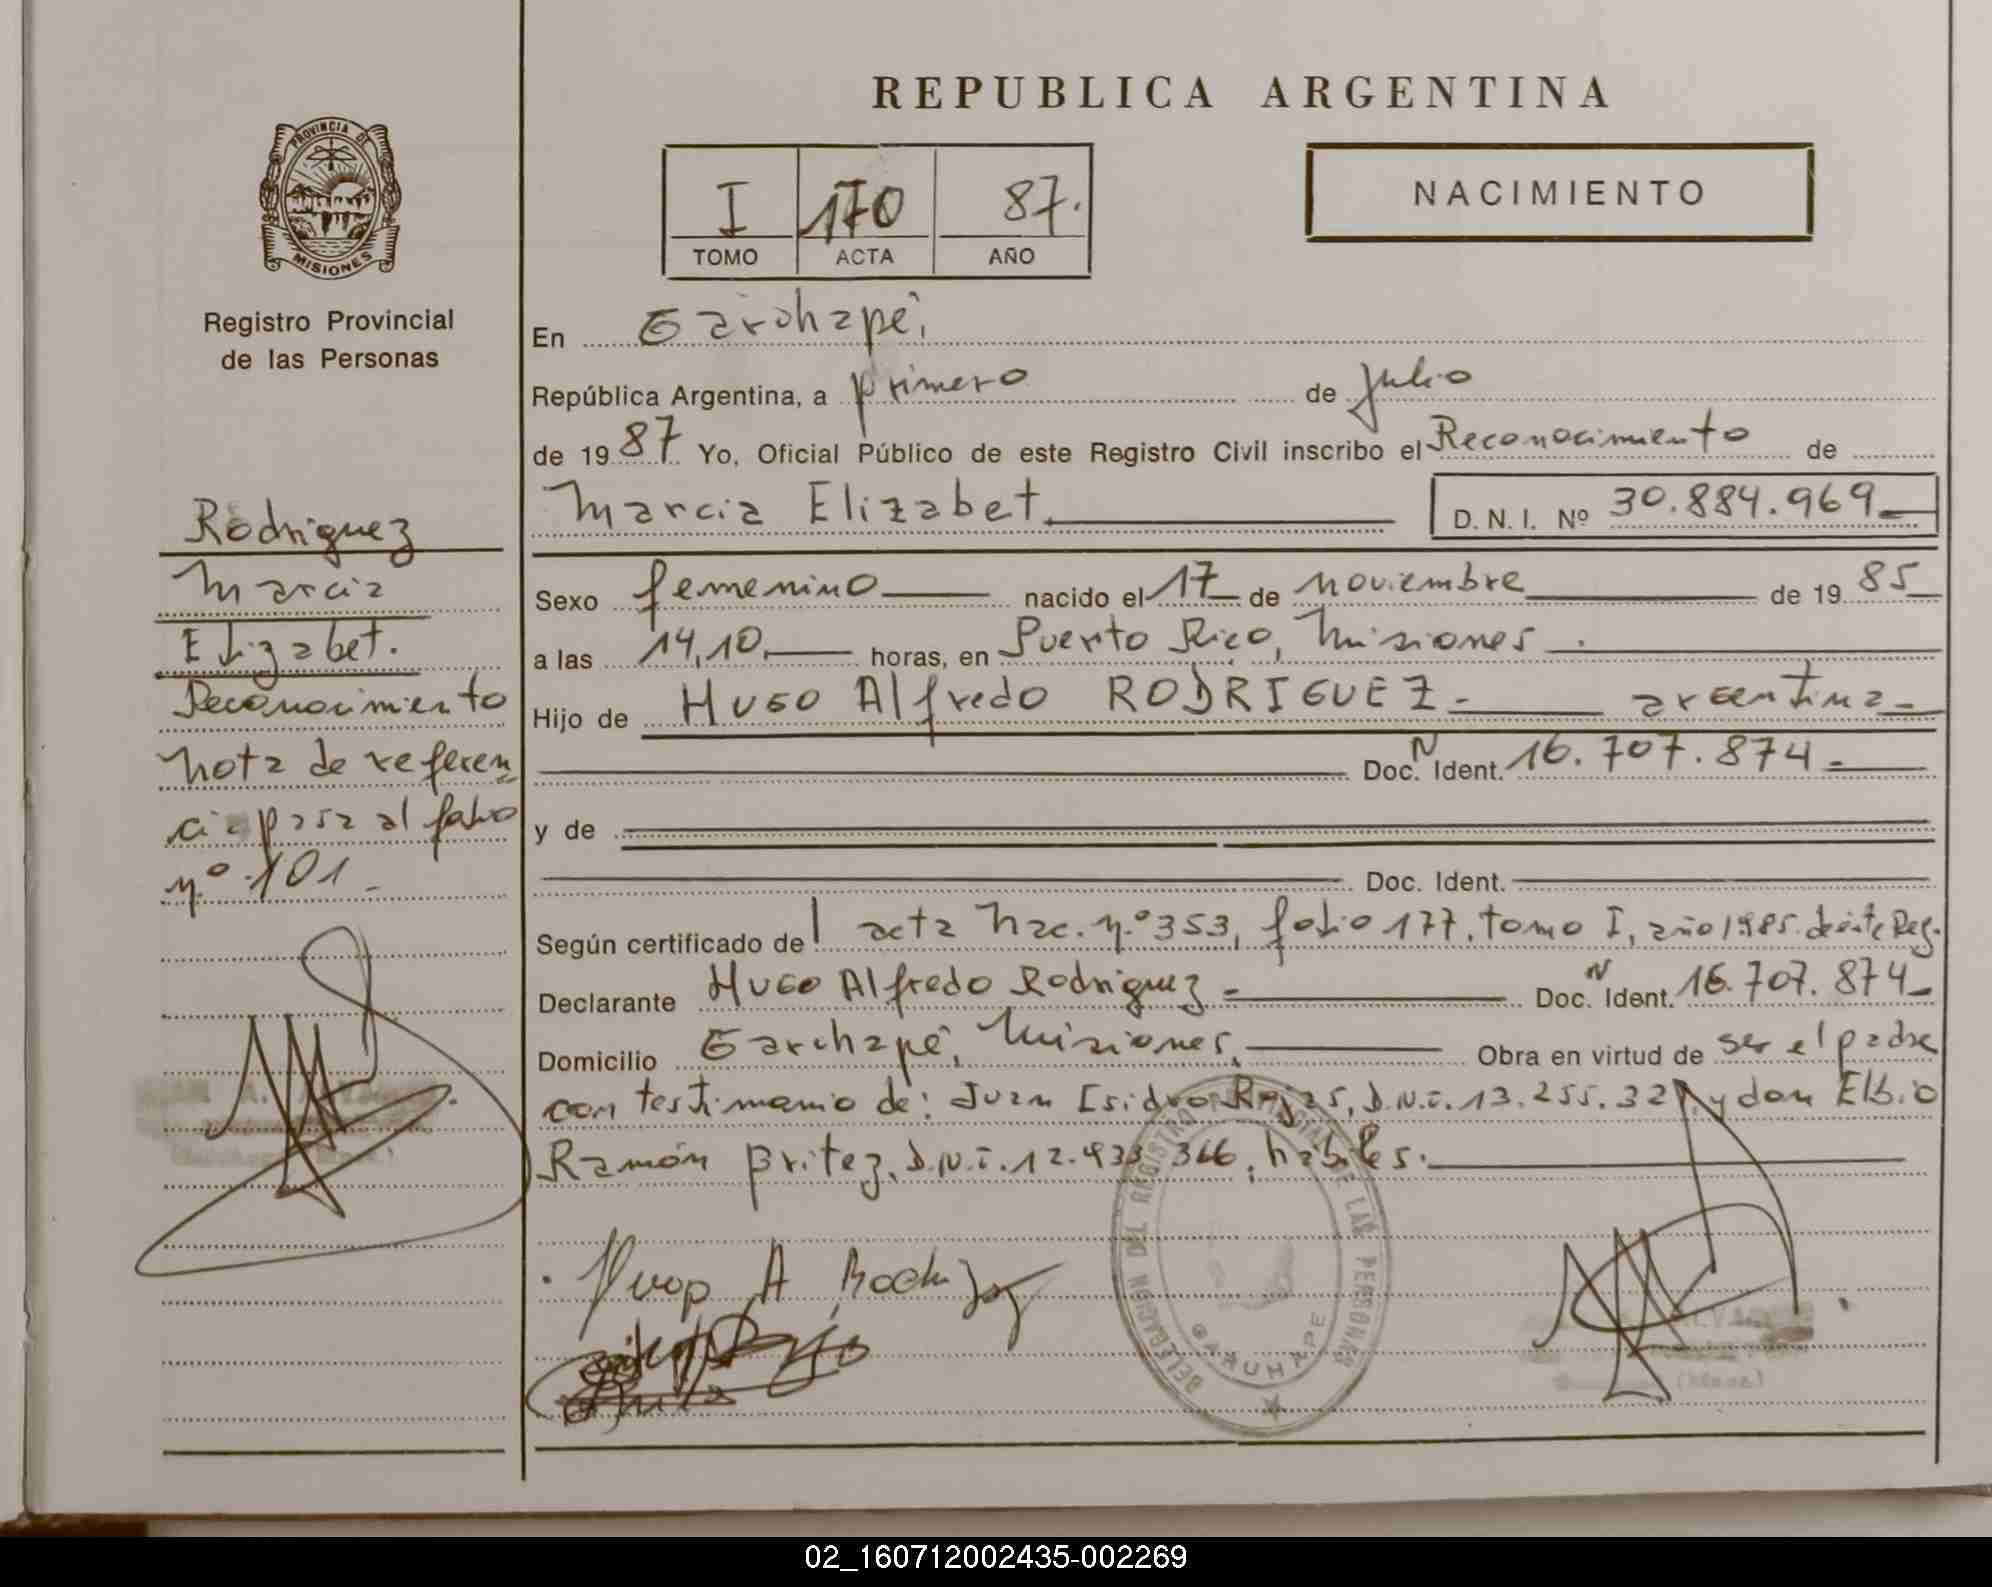 REPUBLICA ARGENTINA
PROVINCIA DE MISIONES
Registro Provincial
de las Personas
I 170 87.
TOMO ACTA AÑO
NACIMIENTO
En Garuhapé,
República Argentina, a primero de Julio
de 1987 Yo, Oficial Público de este Registro Civil inscribo el Reconocimiento de
Marcia Elizabet. D. N. I. Nº 30.884.969
Sexo femenino nacido el 17 de noviembre de 1985
a las 14,10 horas, en Puerto Rico, Misiones.
Hijo de HUGO Alfredo RODRIGUEZ argentina
Doc. N Ident. 16.707.874
y de
Doc. Ident.
Según certificado de acta Nac. n.º 353, folio 177, tomo I, año 1985. de este Reg.
Declarante HUGO Alfredo Rodriguez Doc. N Ident. 16.707.874
Domicilio Garuhapé, Misiones, Obra en virtud de ser el padre
con testimonio de: Juan Isidro Rojas, D.N.I. 13.255.32 y don Elbio
Ramón Britez, D.N.I. 12. 366, hábiles.
Rodriguez
Marcia
Elizabet.
Reconocimiento
nota de referen
cia pasa al folio
nº 101
Hugo A Rodriguez
DELEGACION DEL REGISTRO PROVINCIAL DE LAS PERSONAS
GARUHAPE
02_160712002435-002269